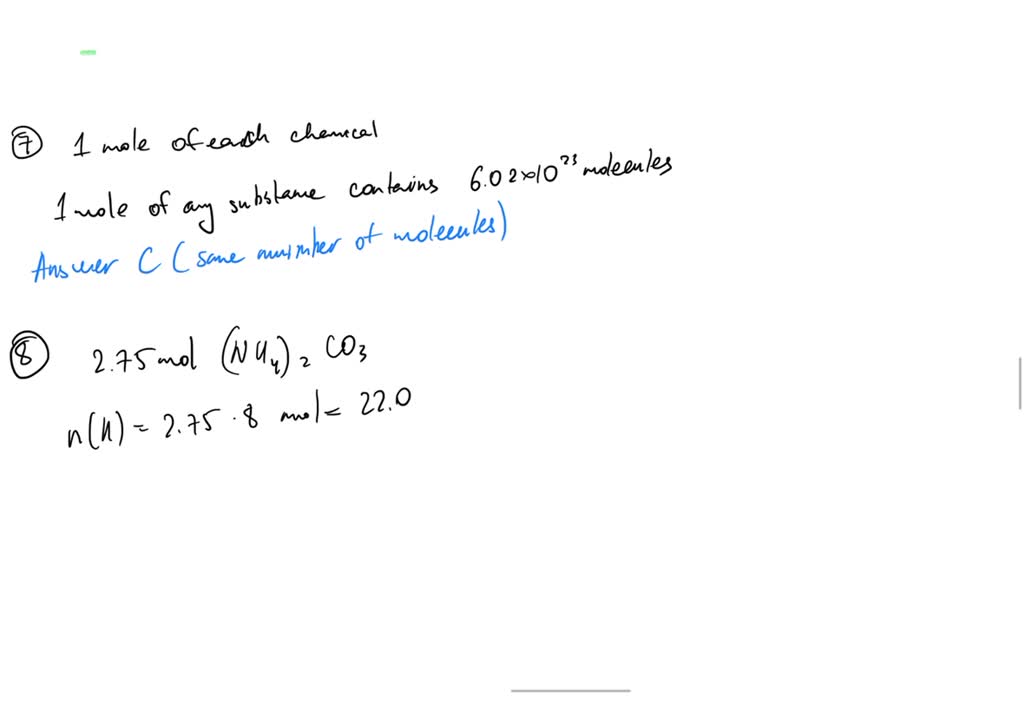 7 1 mole of each chemical
1 mole of any substance contains 6.02×10²³ molecules
Answer C (same number of molecules)
8 2.75 mol (NH₄)₂ CO₃
n(H) = 2.75 · 8 mol = 22.0